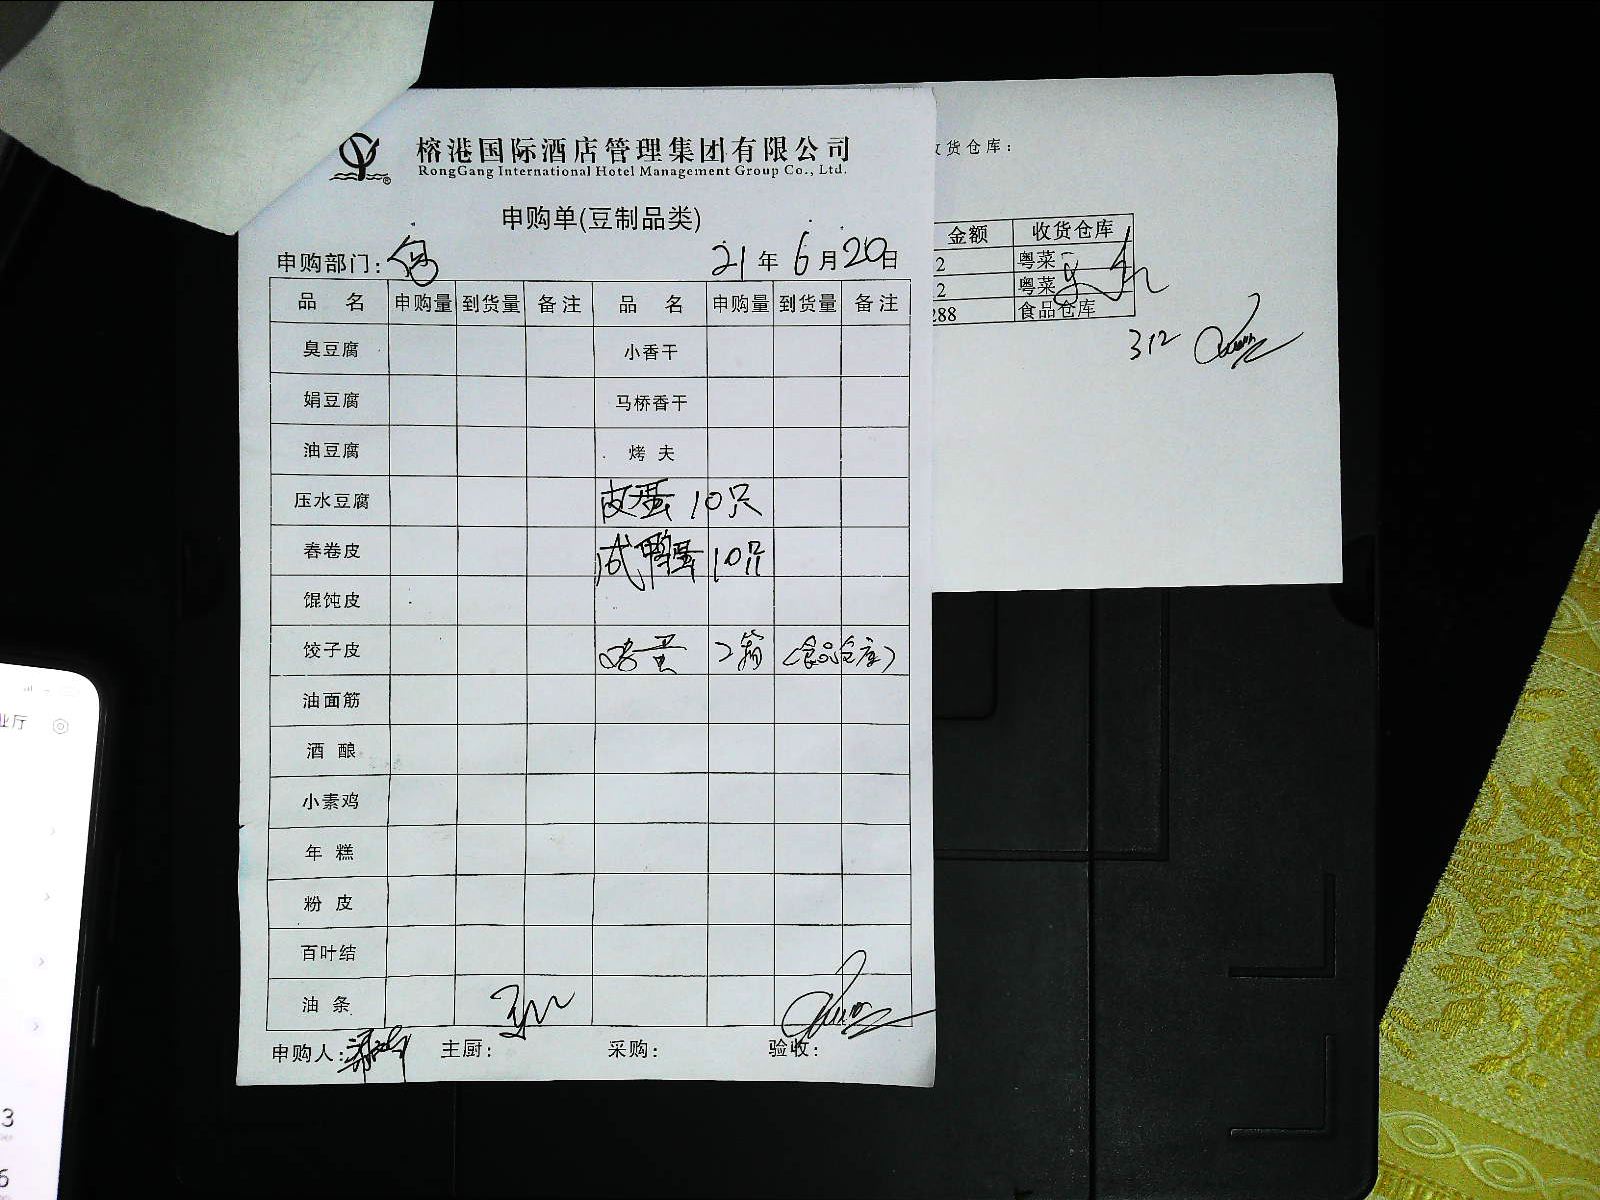 榕港国际酒店管理集团有限公司
RongGang International Hotel Management Group Co., Ltd.
申购单(豆制品类)
申购部门: 21年6月20日
品名 申购量 到货量 备注 品名 申购量 到货量 备注
臭豆腐 小香干
娟豆腐 马桥香干
油豆腐 烤夫
压水豆腐 皮蛋 10只
春卷皮 咸鸭蛋 10只
馄饨皮
饺子皮 蛋 2箱 (食品仓库)
油面筋
酒酿
小素鸡
年糕
粉皮
百叶结
油条
申购人: 主厨: 采购: 验收:
货仓库:
金额 收货仓库
2 粤菜
2 粤菜
288 食品仓库
312
业厅
3
6